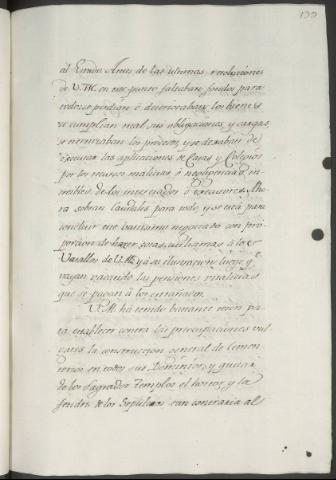 139
al Erario. Antes de las ultimas resoluciones
de V.M. en este punto faltaban fondos para
todo: se perdian ó deterioraban los bienes
se cumplian mal sus obligaciones, y cargas
se eternizaban los pleitos, y se dexaban de
executar las aplicaciones de Casas, y Colegios
por los recursos malicias ó negligencia
de los interesados ó executores. Aho-
ra sobran caudales para todo, y se está para
concluir este vastisimo negociado con pro-
porcion de hacer otros auxilios à los
Vasallos de V.M. y á su ilustracion luego q.e
vayan vacando las pensiones vitalicias
que se pagan à los extrañados.
V.M. há tenido bastante teson pa-
ra establecer contra las preocupaciones vul-
gares la construccion general de Cemen-
terios en todos sus Dominios, y quitar
de los Sagrados Templos el horror, y la
fendez de los Sepulcros tan contraria al